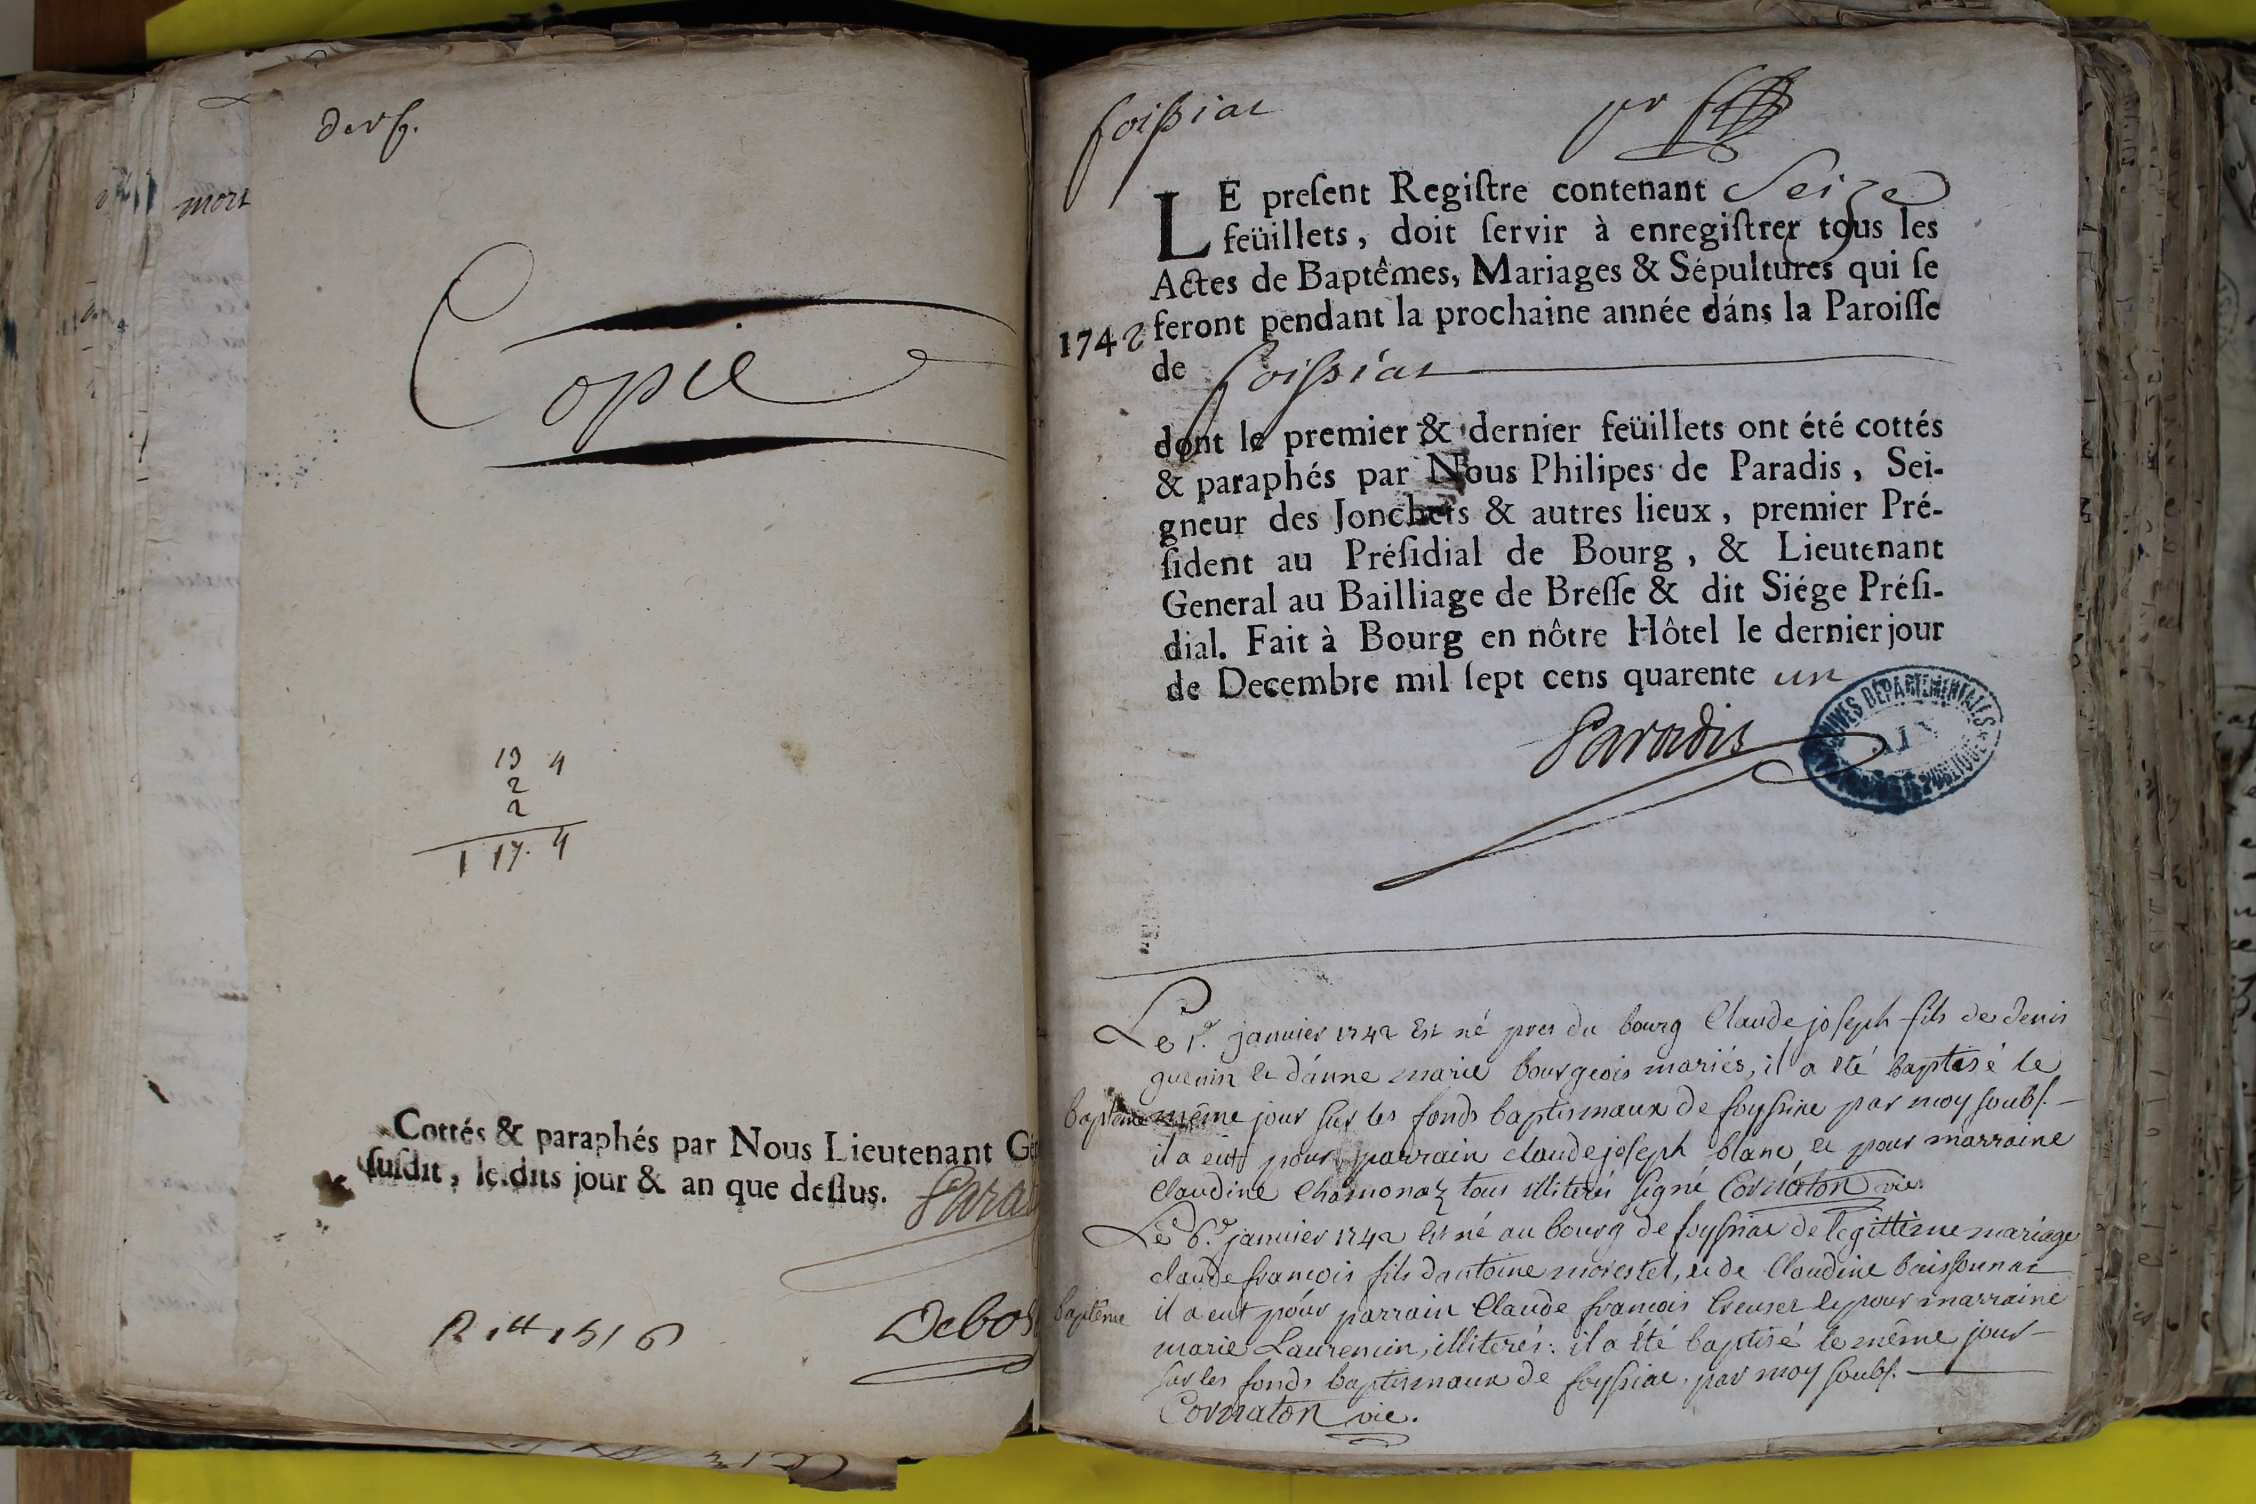 mort
Copie
19 4
2
2
1 17. 4
Cottés & paraphés par Nous Lieutenant Gé
susdit, le dits jour & an que dessus. Para
Debos
foissiat
LE present Registre contenant Seize
feüillets, doit servir à enregistrer tous les
Actes de Baptêmes, Mariages & Sépultures qui se
1742 feront pendant la prochaine année dáns la Paroisse
de foissiat
dont le premier & dernier feüillets ont été cottés
& paraphés par Nous Philipes de Paradis, Sei-
gneur des Jonchets & autres lieux, premier Pré-
sident au Présidial de Bourg, & Lieutenant
General au Bailliage de Bresse & dit Siége Prési-
dial. Fait à Bourg en nôtre Hôtel le dernier jour
de Decembre mil sept cens quarente un
Paradis
ARCHIVES DEPARTEMENTALES
Le 1r. janvier 1742 Est né pres du bourg Claude joseph fils de denis
guenin et d'anne marie bourgeois mariés, il a eté baptisé le
baptême même jour sur les fonds baptismaux de foyssiat par moy soubs.
il a eut pour parrain claude joseph blanc et pour marraine
Claudine Chamonaz tous illiterés signé Cornaton vic.
Le 6e. janvier 1742 Est né au bourg de foyssiat de legittime mariage
claude francois fils dantoine morestel, et de Claudine buissonnat
baptême il a eut pour parrain Claude francois Creuset et pour marraine
marie Laurencin, illiterés: il a été baptisé le même jour
sur les fonds baptismaux de foyssiat, par moy soubs.
Cornaton vic.